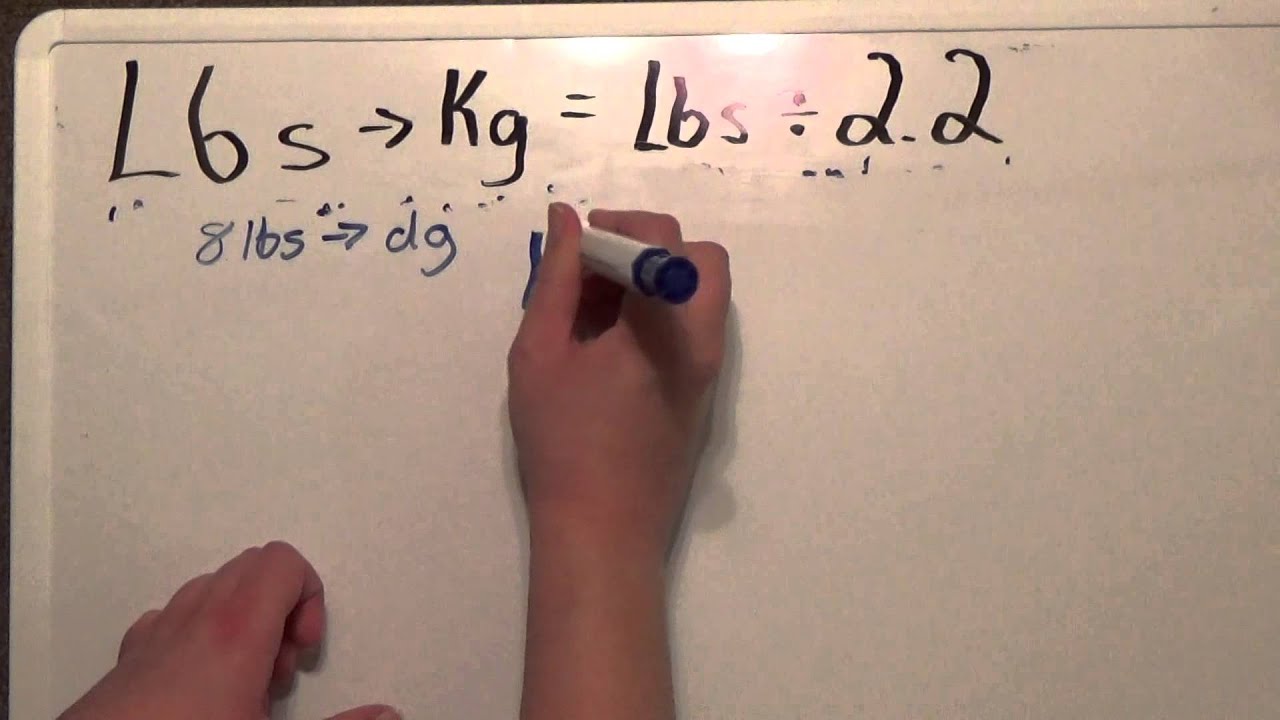 Lbs → Kg = Lbs ÷ 2.2
8 lbs → dg